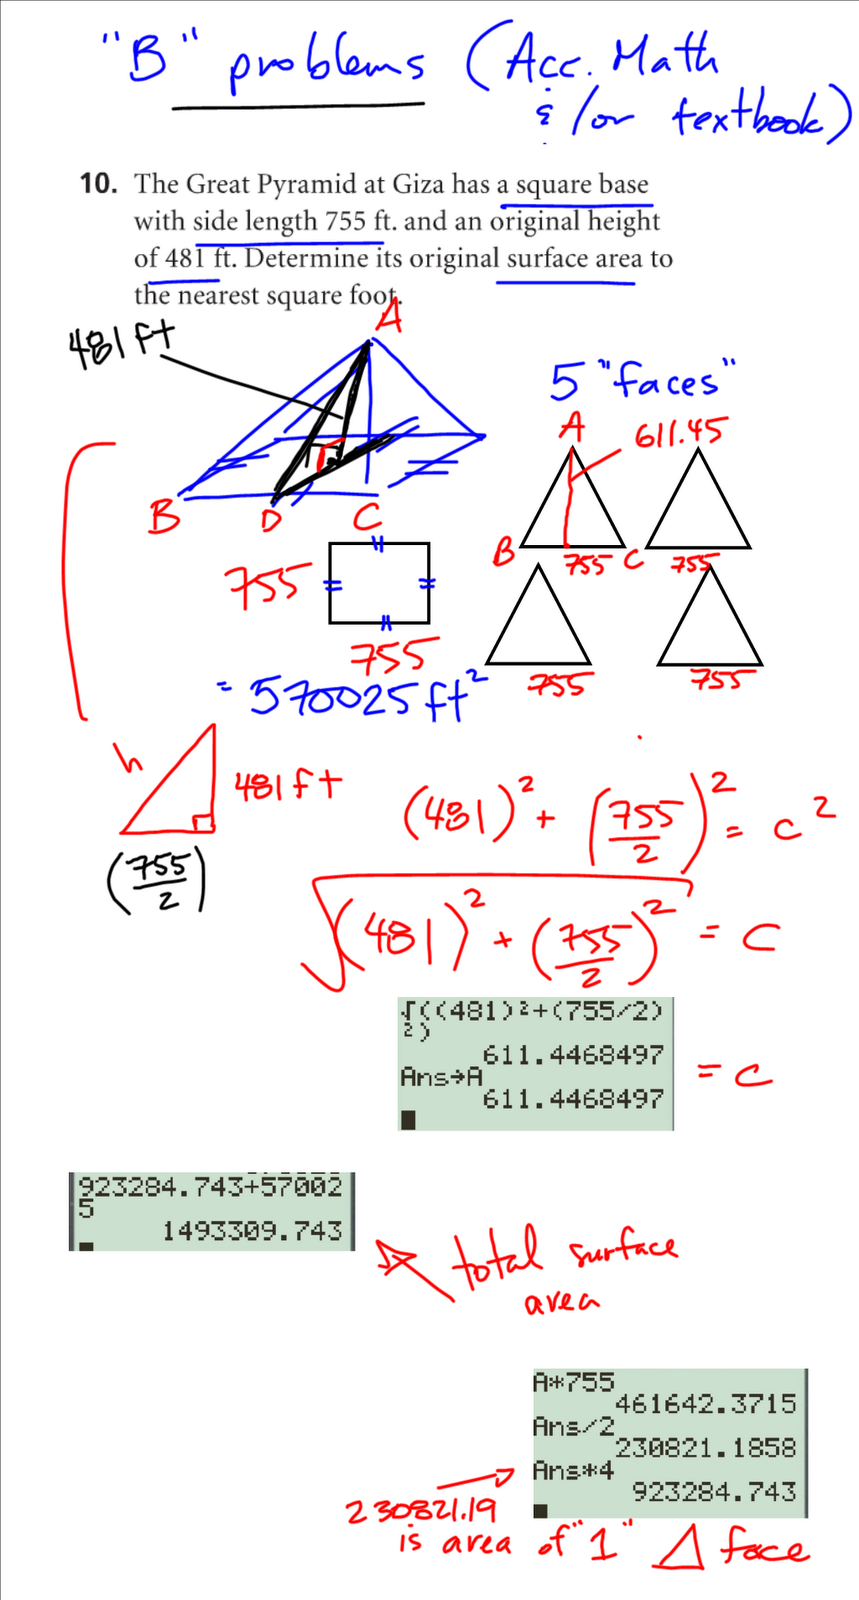 "B" problems (Acc. Math
& /or textbook)
10. The Great Pyramid at Giza has a square base
with side length 755 ft. and an original height
of 481 ft. Determine its original surface area to
the nearest square foot.
481 ft
A
B
D
C
5 "faces"
A
611.45
B
755
C
755
755
755
755
755
= 570025 ft²
h
481 ft
(755/2)
(481)² + (755/2)² = c²
√(481)² + (755/2)² = c
√((481)²+(755/2)
²)
611.4468497
Ans→A
611.4468497
= c
923284.743+57002
5
1493309.743
total surface
area
A*755
461642.3715
Ans/2
230821.1858
Ans*4
923284.743
230821.19
is area of "1" Δ face